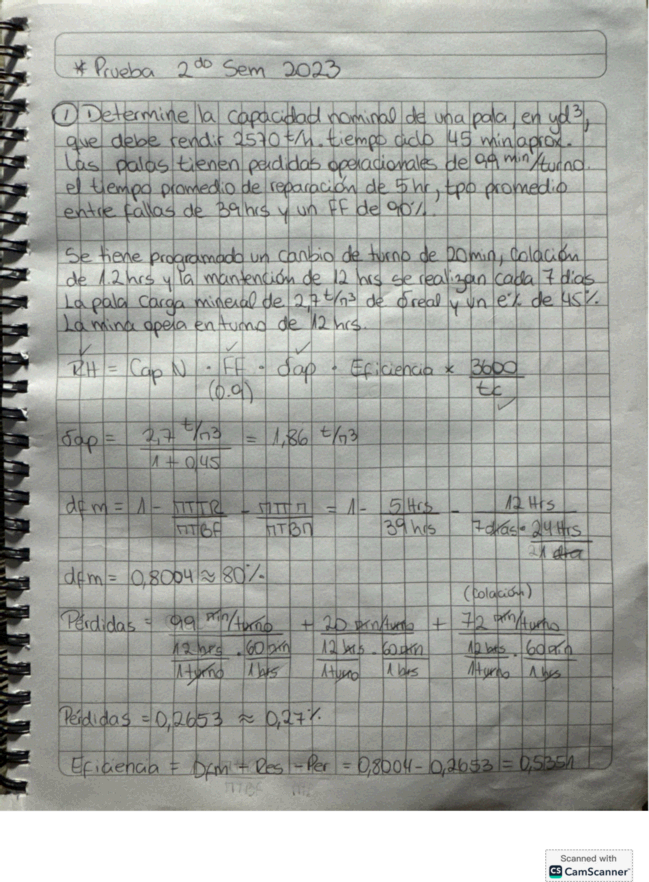 * Prueba 2do Sem 2023
① Determine la capacidad nominal de una pala, en yd³,
que debe rendir 2570 t/h. tiempo ciclo 45 min aprox.
Las palas tienen perdidas operacionales de 99 min/turno.
el tiempo promedio de reparación de 5 hr, tpo promedio
entre fallas de 39 hrs y un FF de 90%.
Se tiene programado un canbio de turno de 20min, colación
de 1.2 hrs y la mantención de 12 hrs se realizan cada 7 días
La pala carga mineral de 2,7 t/m3 de δreal y un e% de 45%.
La mina opera en turno de 12 hrs.
RH = Cap N · FF · δap · Eficiencia * 3600
(0.9) tc
δap = 2,7 t/m3 = 1,86 t/m3
1 + 0,45
dfm = 1 - MTTR - MTTM = 1 - 5 Hrs - 12 Hrs
MTBF MTBM 39 hrs 7 días · 24 Hrs
dfm = 0,8004 ≈ 80%
(Colación)
Pérdidas = 99 min/turno + 20 min/turno + 72 min/turno
12 hrs · 60 min 12 hrs · 60 min 12 hrs · 60 min
1 turno 1 hrs 1 turno 1 hrs 1 turno 1 hrs
Pérdidas = 0,2653 ≈ 0,27%
Eficiencia = Dfm - Res - Per = 0,8004 - 0,2653 = 0,5351
Scanned with
CS CamScanner